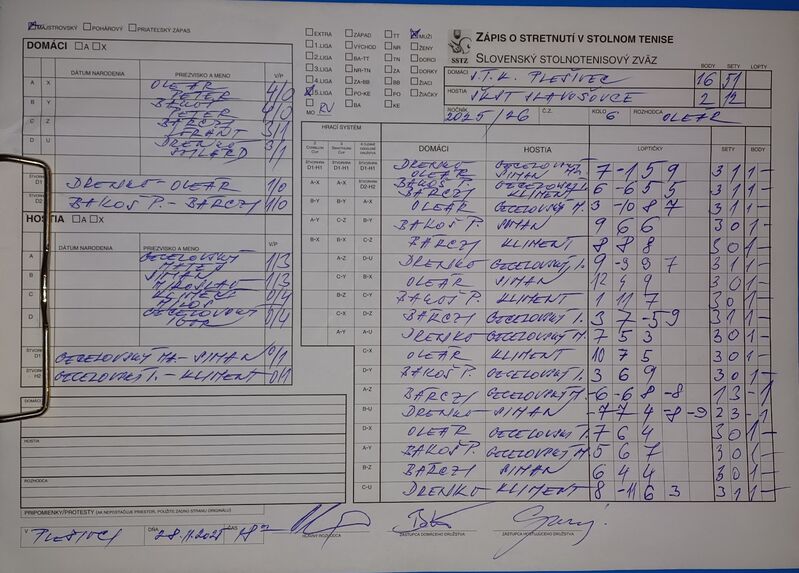 MAJSTROVSKÝ POHÁROVÝ PRIATEĽSKÝ ZÁPAS
DOMÁCI A X
DÁTUM NARODENIA PRIEZVISKO A MENO V/P
A X OLEÁR PETER 4/0
B Y BAKOŠ PETER 4/0
C Z BARCZI 3/1
D U DRENKO 3/1
ŠTVORHRA D1 DRENKO - OLEÁR 1/0
ŠTVORHRA D2 BAKOŠ P. - BARCZI 1/0
HOSTIA A X
DÁTUM NARODENIA PRIEZVISKO A MENO V/P
A GECELOVSKÝ MATEJ 1/3
B SIMAN MIROSLAV 1/3
C KLIMENT MILOŠ 0/4
D GECELOVSKÝ IGOR 0/4
D1 GECELOVSKÝ M. - SIMAN 0/1
H2 GECELOVSKÝ I. - KLIMENT 0/1
DOMÁCI
HOSTIA
ROZHODCA
PRIPOMIENKY/PROTESTY (AK NEPOSTAČUJE PRIESTOR, POUŽITE ZADNÚ STRANU ORIGINÁLU)
V PLEŠIVCI DŇA 28.11.2025 ČAS
HLAVNÝ ROZHODCA ZÁSTUPCA DOMÁCEHO DRUŽSTVA ZÁSTUPCA HOSŤUJÚCEHO DRUŽSTVA
EXTRA ZÁPAD TT MUŽI
1.LIGA VÝCHOD NR ŽENY
2.LIGA BA-TT TN DORCI
3.LIGA NR-TN ZA DORKY
4.LIGA ZA-BB BB ŽIACI
5.LIGA PO-KE PO ŽIAČKY
MO RV BA KE
SSTZ
ZÁPIS O STRETNUTÍ V STOLNOM TENISE
SLOVENSKÝ STOLNOTENISOVÝ ZVÄZ
BODY SETY LOPTY
DOMÁCI S.T.K. PLEŠIVEC 16 51
HOSTIA ŠKST SLAVOŠOVCE 2 12
ROČNÍK 2025/26 Č.Z. KOLO 6 ROZHODCA OLEÁR
HRACÍ SYSTÉM
DOMÁCI HOSTIA LOPTIČKY SETY BODY
D1-H1 D1-H1 D1-H1 DRENKO OLEÁR GECELOVSKÝ SIMAN 7 -1 5 9 3 1 1 -
A-X A-X D2-H2 BAKOŠ P. BARCZI GECELOVSKÝ I. KLIMENT 6 -6 5 5 3 1 1 -
B-Y B-Y A-X OLEÁR GECELOVSKÝ M. 3 -10 8 7 3 1 1 -
A-Y C-Z B-Y BAKOŠ P. SIMAN 9 6 6 3 0 1 -
B-X B-X C-Z BARCZI KLIMENT 8 8 8 3 0 1 -
A-Z D-U DRENKO GECELOVSKÝ I. 9 -9 9 7 3 1 1 -
C-Y B-X OLEÁR SIMAN 12 4 9 3 0 1 -
B-Z C-Y BAKOŠ P. KLIMENT 1 11 7 3 0 1 -
C-X D-Z BARCZI GECELOVSKÝ I. 3 7 -5 9 3 1 1 -
A-Y A-U DRENKO GECELOVSKÝ M. 7 5 3 3 0 1 -
C-X OLEÁR KLIMENT 10 7 5 3 0 1 -
D-Y BAKOŠ P. GECELOVSKÝ I. 3 6 9 3 0 1 -
A-Z BARCZI GECELOVSKÝ M. -6 -6 8 -8 1 3 - 1
B-U DRENKO SIMAN -7 7 4 -8 -9 2 3 - 1
D-X OLEÁR GECELOVSKÝ I. 7 6 4 3 0 1 -
A-Y BAKOŠ P. GECELOVSKÝ M. 5 6 7 3 0 1 -
B-Z BARCZI SIMAN 6 4 4 3 0 1 -
C-U DRENKO KLIMENT 8 -11 6 3 3 1 1 -